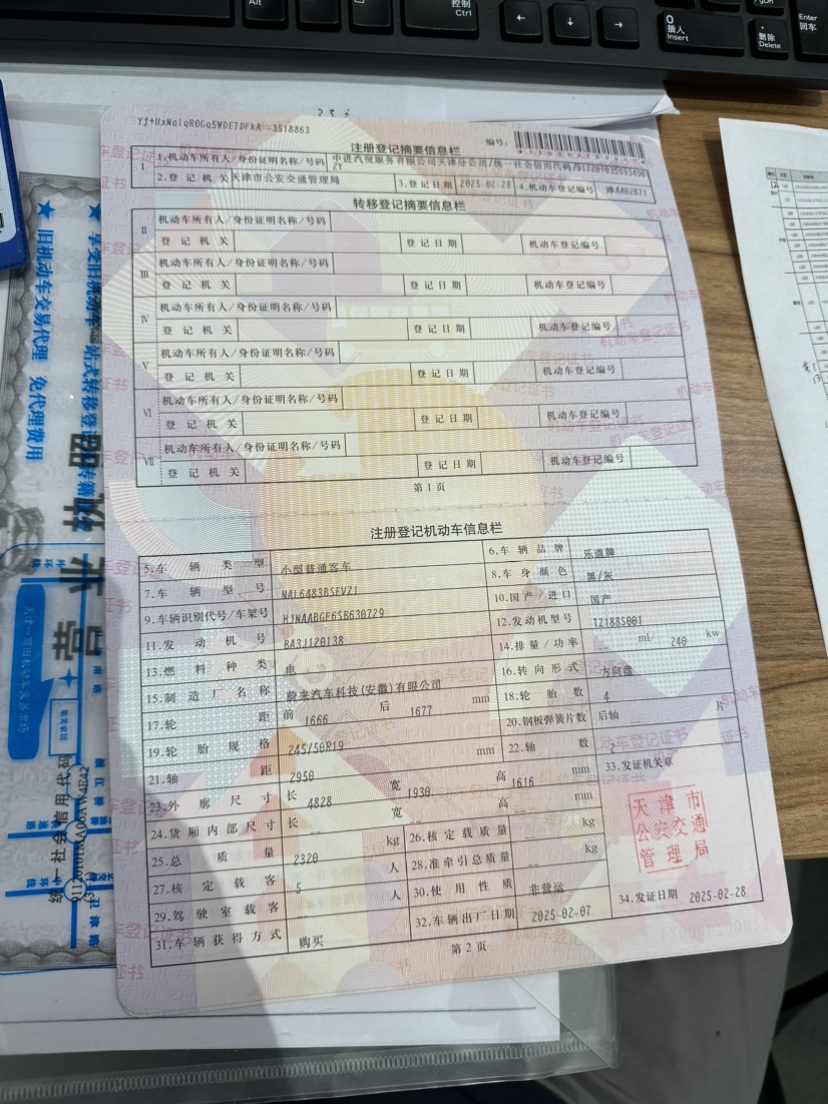 控制
Ctrl
Alt
插入
Insert
删除
Delete
Enter
回车
编号:
注册登记摘要信息栏
I 1.机动车所有人/身份证明名称/号码
2.登记机关 天津市公安交通管理局 3.登记日期 2025-02-28 4.机动车登记编号
转移登记摘要信息栏
II 机动车所有人/身份证明名称/号码
登记机关 登记日期 机动车登记编号
III 机动车所有人/身份证明名称/号码
登记机关 登记日期 机动车登记编号
IV 机动车所有人/身份证明名称/号码
登记机关 登记日期 机动车登记编号
V 机动车所有人/身份证明名称/号码
登记机关 登记日期 机动车登记编号
VI 机动车所有人/身份证明名称/号码
登记机关 登记日期 机动车登记编号
VII 机动车所有人/身份证明名称/号码
登记机关 登记日期 机动车登记编号
第1页
注册登记机动车信息栏
5.车辆类型 小型普通客车 6.车辆品牌 乐道牌
7.车辆型号 NAL6483BSEVZ1 8.车身颜色 黑/灰
9.车辆识别代号/车架号 HJNAABGF6SB630729 10.国产/进口 国产
11.发动机号 BA3J120138 12.发动机型号 TZ188S001
13.燃料种类 电 14.排量/功率 -- ml/ 240 kw
15.制造厂名称 蔚来汽车科技(安徽)有限公司 16.转向形式 方向盘
17.轮距 前 1666 后 1677 mm 18.轮胎数 4
19.轮胎规格 245/50R19 20.钢板弹簧片数 后轴 -- 片
21.轴距 2950 mm 22.轴数 2
23.外廓尺寸 长 4828 宽 1930 高 1616 mm 33.发证机关章
24.货厢内部尺寸 长 -- 宽 -- 高 -- mm
25.总质量 2320 kg 26.核定载质量 -- kg
27.核定载客 5 人 28.准牵引总质量 -- kg
29.驾驶室载客 -- 人 30.使用性质 非营运
31.车辆获得方式 购买 32.车辆出厂日期 2025-02-07 34.发证日期 2025-02-28
天津市
公安交通
管理局
第2页
旧机动车交易代理 免代理费用
统一社会信用代码